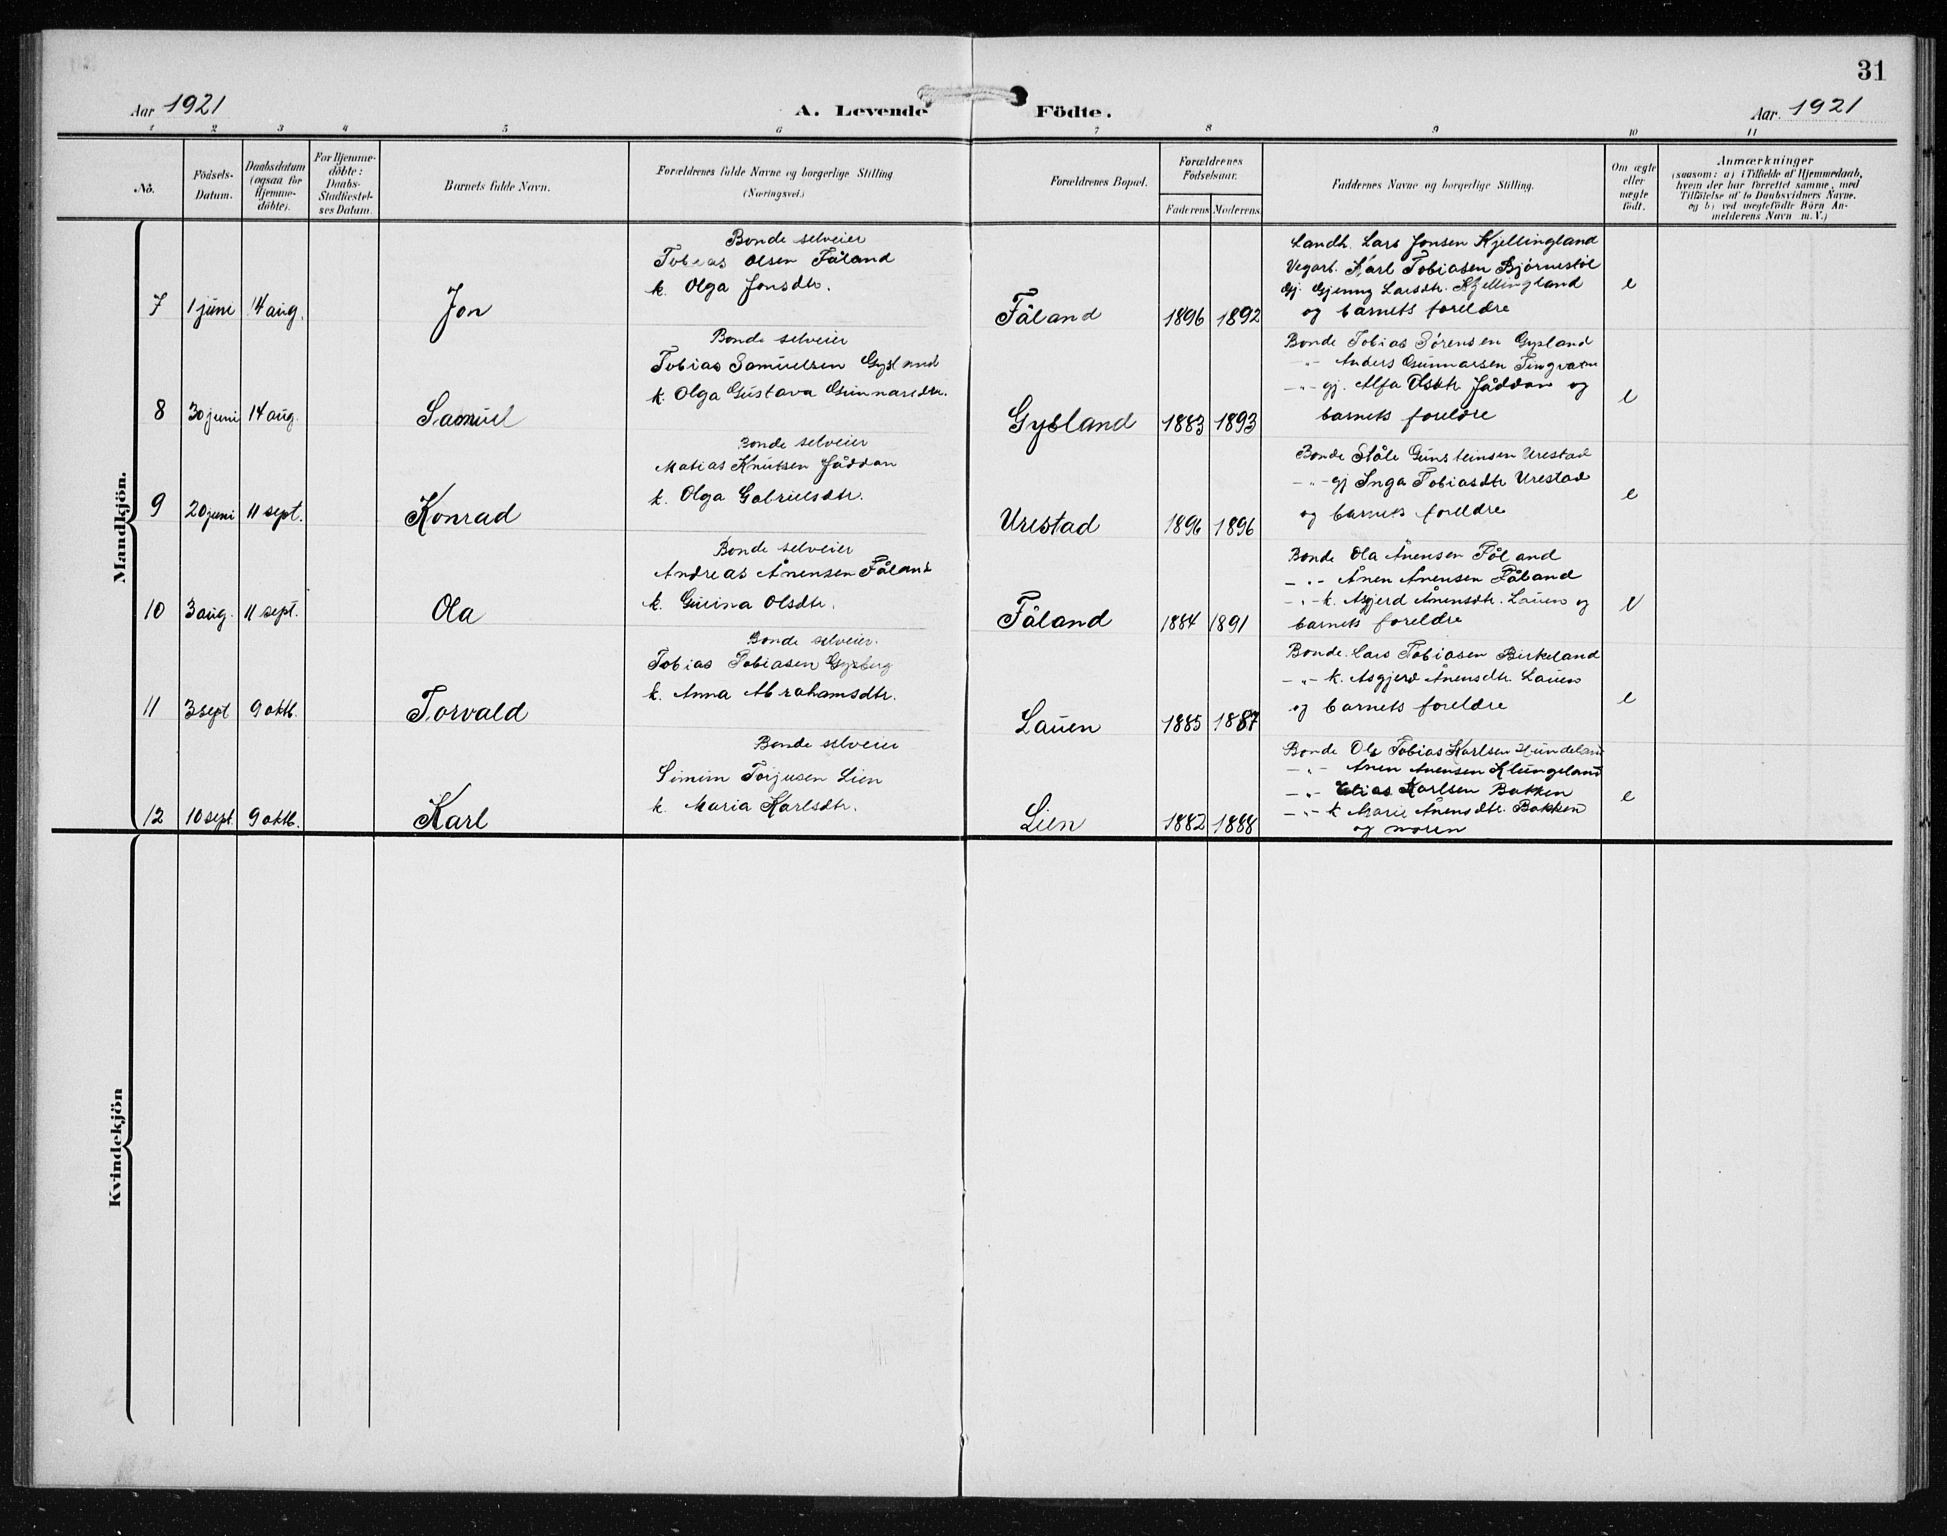 31
Aar 1921 A. Levende Födte. Aar. 1921
1 2 3 4 5 6 7 8 9 10 11
No. Födsels-Datum. Daabsdatum (ogsaa for Hjemme-döbte). For Hjemme-döbte: Daabs-Stadfæstel-ses Datum. Barnets fulde Navn. Forældrenes fulde Navne og borgerlige Stilling (Næringsvei.) Forældrenes Bopæl. Forældrenes Födselsaar. Faderens Moderens Faddernes Navne og borgerlige Stilling. Om ægte eller uægte födt. Anmærkninger (saasom: a) i Tilfælde af Hjemmedaab, hvem der har forrettet samme, med Tilföielse af to Daabsvidners Navne. og b) ved uægtefödte Börn An-melderens Navn m. V.)
Mandkjön.
Bonde selveier
Tobias Olsen Fåland
k. Olga Jonsdtr.
7 1 juni 14 aug. Jon Fåland 1896 1892
Landh. Lars Jonsen Kjellingland
Vegarb. Karl Tobiasen Bjørnestøl
Gj. Gjenny Larsdtr. Kjellingland
og barnets foreldre
e
Bonde selveier
Tobias Samuelsen Gysland
k. Olga Gustava Gunnarsdtr.
8 30 juni 14 aug. Samuel Gysland 1883 1893
Bonde Tobias Sørensen Gysland
-"- Anders Gunnarsen Tingvatne
-"- gj. Alfa Olsdtr Jåddan og
barnets foreldre
e
Bonde selveier
Matias Knutsen Jåddan
k. Olga Gabrielsdtr.
9 20 juni 11 sept. Konrad Urestad 1896 1896
Bonde Ståle Gunsteinsen Urestad
-"- gj Inga Tobiasdtr Urestad
og barnets foreldre
e
Bonde selveier
Andreas Ånensen Fåland
k. Gurina Olsdtr.
10 3 aug. 11 sept. Ola Fåland 1884 1891
Bonde Ola Ånensen Fåland
-"- Ånen Ånensen Fåland
-"- k. Asgjerd Ånensdtr. Lauen og
barnets foreldre
e
Bonde selveier.
Tobias Tobiasen Gysberg
k. Anna Abrahamsdtr.
11 3 sept 9 oktb. Torvald Lauen 1885 1887
Bonde. Lars Tobiasen Birkeland
-"- k. Asgjerd Ånensdtr Lauen
og barnets foreldre
e
Bonde selveier
Simen Torjusen Lien
k. Maria Karlsdtr.
12 10 sept. 9 oktb. Karl Lien 1882 1888
Bonde Ole Tobias Karlsen Hundeland
-"- Anen Anensen Klungeland
-"- Elias Karlsen Bakken
-"- k Marie Ånensdtr. Bakken
og moren
e
Kvindekjön